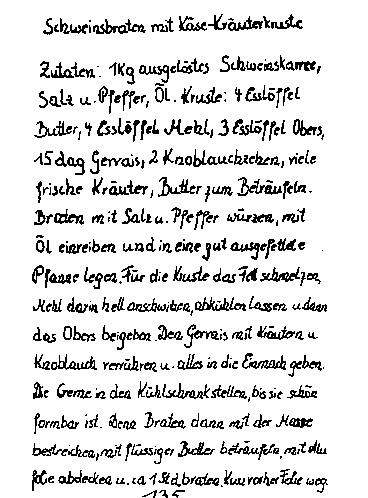 Schweinsbraten mit Käse-Kräuterkruste
Zutaten: 1Kg ausgelöstes Schweinskarree,
Salz u. Pfeffer, Öl. Kruste: 4 Esslöffel
Butter, 4 Esslöffel Mehl, 3 Esslöffel Obers,
15 dag Gervais, 2 Knoblauchzehen, viele
frische Kräuter, Butter zum Beträufeln.
Braten mit Salz u. Pfeffer würzen, mit
Öl einreiben und in eine gut ausgefettete
Pfanne legen. Für die Kruste das Fett schmelzen,
Mehl darin hell anschwitzen, abkühlen lassen u. dann
das Obers beigeben. Den Gervais mit Kräutern u.
Knoblauch verrühren u. alles in die Einmach geben.
Die Creme in den Kühlschrank stellen, bis sie schön
formbar ist. Denn Braten dann mit der Masse
bestreichen, mit flüssiger Butter beträufeln, mit Alu
folie abdecken u. ca 1 Std. braten. Kurz vorher Folie weg.
135